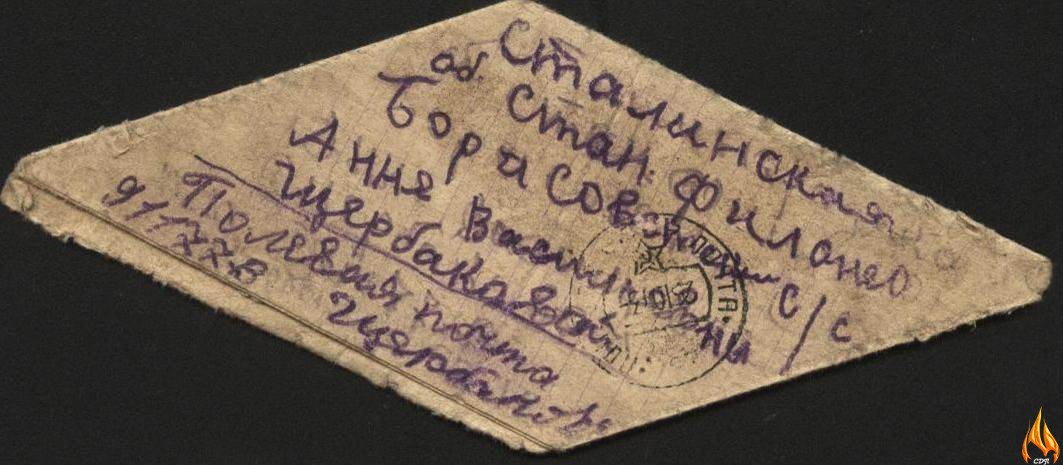 Сталинская
об. стан. Филоново
Борисовский с/с
Анне Васильевни
Щербаковой
Полевая почта
91177В Щербаков
CDЯ